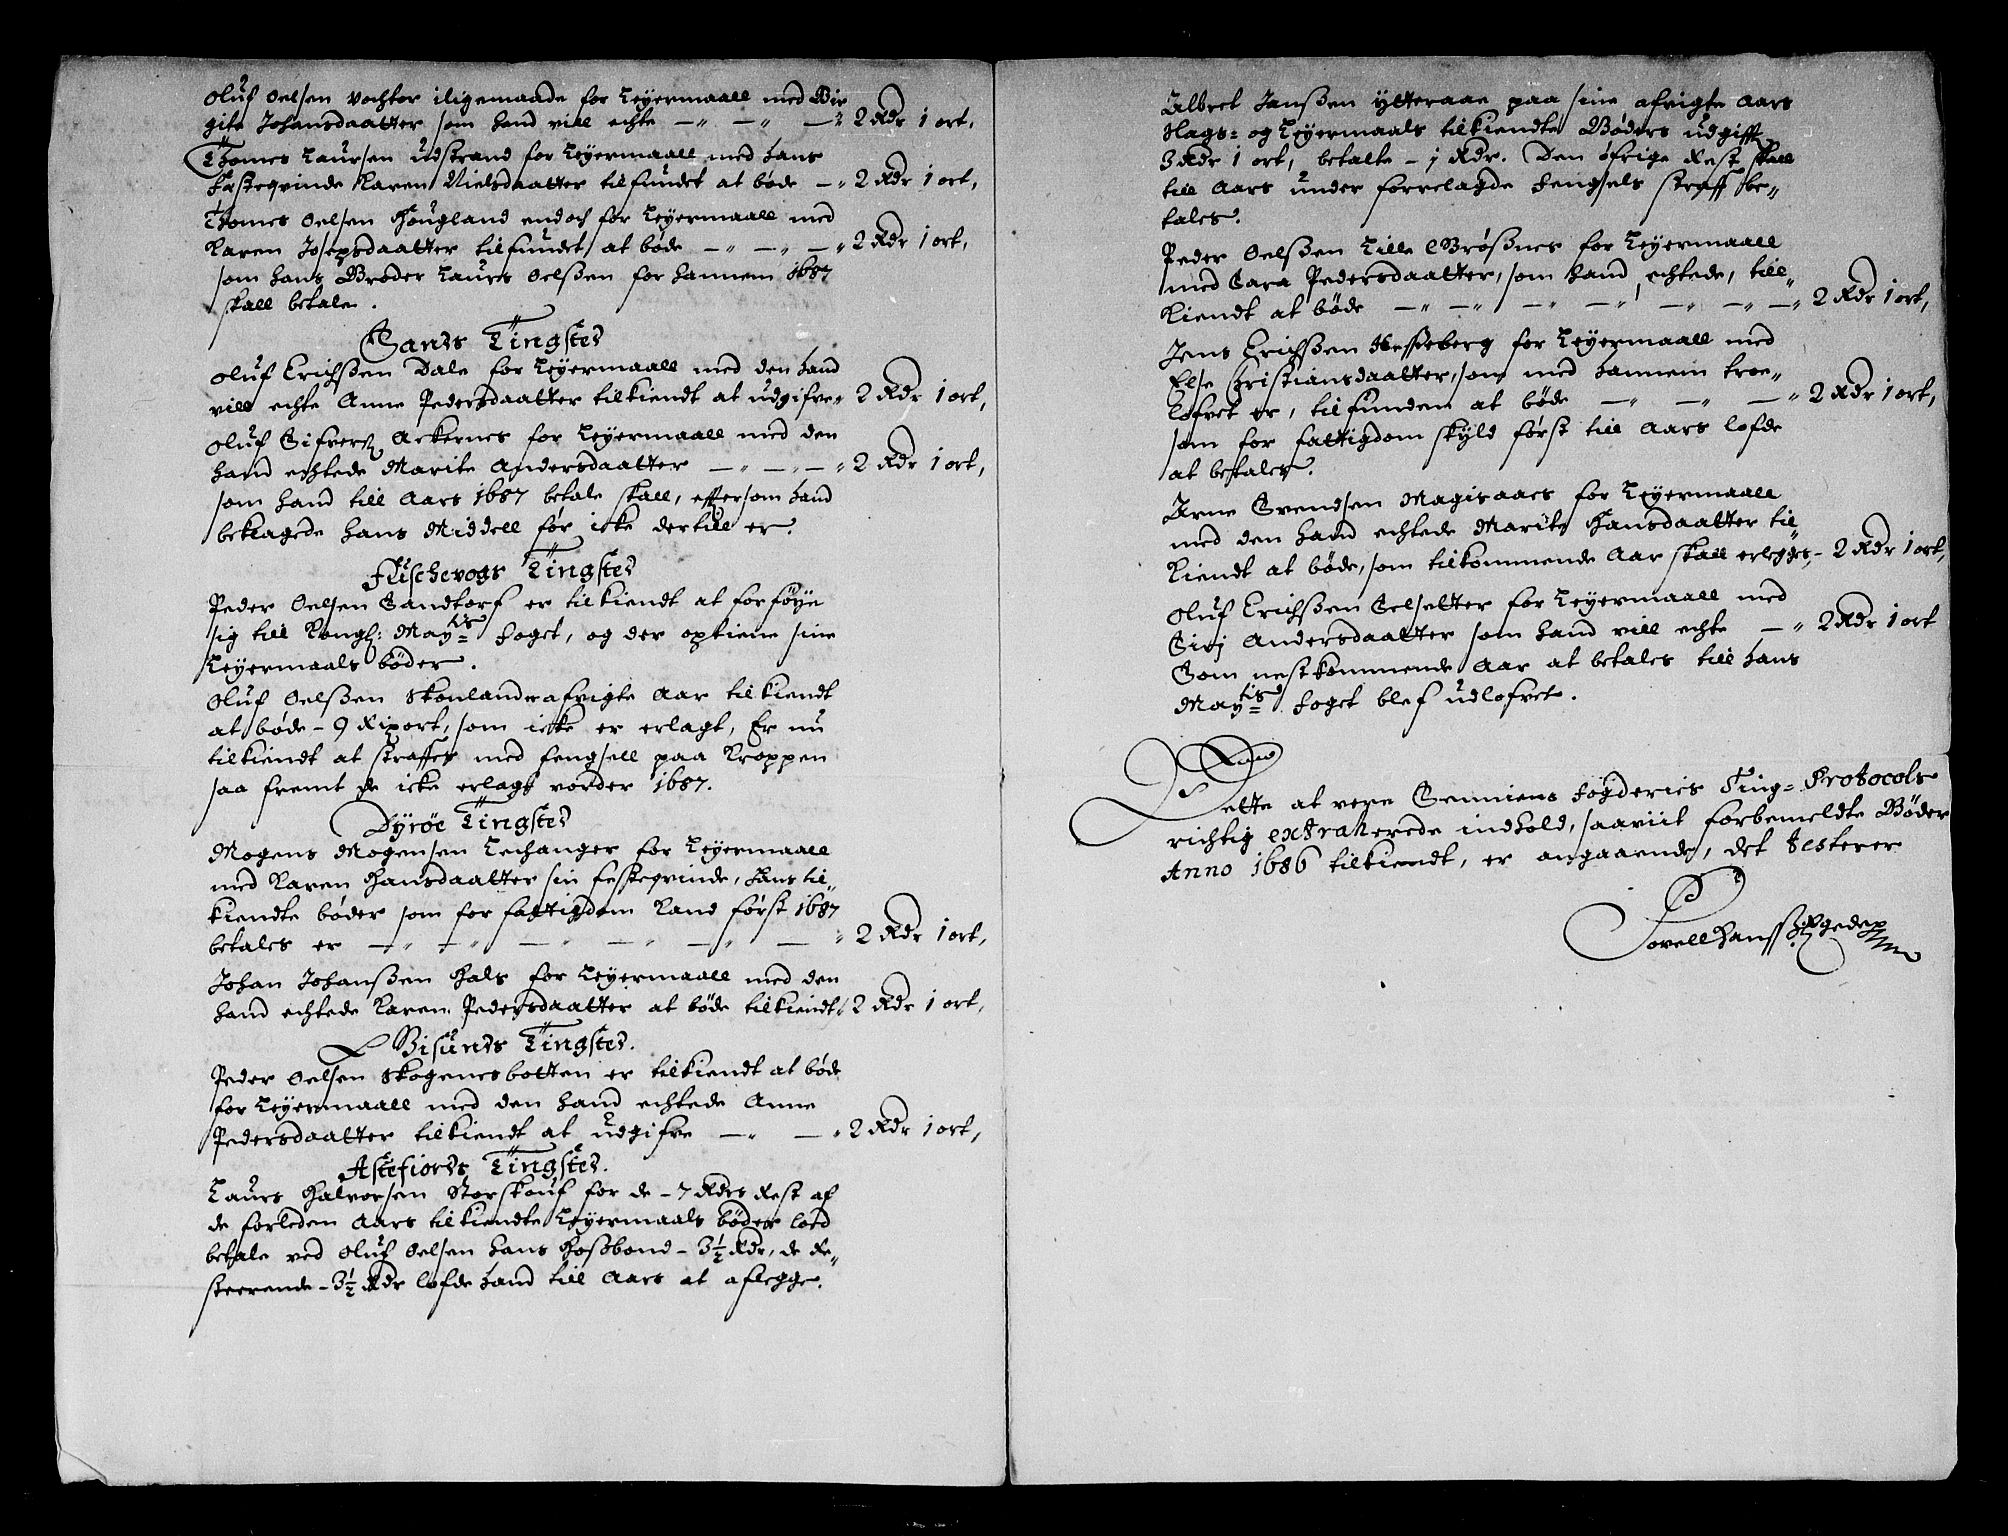 Oluf Oelsen Vochter iligemaade for Leyermaall med Bir
gite Johansdaatter som hand vill echte — " — " — " 2 Rdr 1 ort,
Thomes Laursen Udstrand for Leyermaall med hans
festeqvinde Karen Nielsdaatter tilfundet at bøde — " 2 Rdr 1 ort,
Thomes Oelsen Hougland endoch for Leyermaall med
Karen Josepsdaatter tilfundet at bøde — " — " — " 2 Rdr 1 ort,
som hans Broder Laurs Oelssen for hannem 1687
skall betale.
Sands Tingsted
Oluf Erichssen Dale for Leyermaall med den hand
vill echte Anne Pedersdaatter tilkiendt at udgifve " 2 Rdr 1 ort,
Oluf Sifvers Ackernes for Leyermaall med den
hand echtede Marite Andersdaatter — " — " — " 2 Rdr 1 ort,
som hand till Aars 1687 betale skall, effter som hand
beklagede hans Middell før icke dertill er.
Flischevogs Tingsted
Peder Oelsen Sandtorf er tilkiendt at forføye
sig till Kongl: Maytz foget, og der optiene sine
Leyermaals bøder.
Oluf Oelssen Skonland er afvigte Aar tilkiendt
at bøde – 9 Rixort, som icke er erlagt, Er nu
tilkiendt at straffes med fengsell paa Kroppen
saa fremt de icke erlagt vorder 1687.
Dyrøe Tingsted
Mogens Mogensen Lechanger for Leyermaall
med Karen Hansdaatter sin festeqvinde, hans til,,
kiendte bøder som for fattigdom Kand først 1687
betales er — " — " — " — " — " — " 2 Rdr 1 ort,
Johan Johanssen Hals for Leyermaall med den
hand echtede Karen Pedersdaatter at bøde tilkiendt 2 Rdr 1 ort,
Gisunds Tingsted.
Peder Oelsen Skogenesbotten er tilkiendt at bøde
for Leyermaall med den hand echtede Anne
Pedersdaatter tilkiendt at udgifve — " — " 2 Rdr 1 ort,
Astefiords Tingsted.
Laurs Halvorsen Storskouf for de – 7 Rdrs Rest af
de forleden Aars tilkiendte Leyermaals bøder loed
betale ved Oluf Oelsen hans Hossbond – 3½ Rdr, de Re,,
sterende – 3½ Rdr lofde hand till Aars at aflegge.
Albret Janssen Ytteraae paa sine afvigte Aars
Slags= og Leyermaals tilkiendte Bøders udgifft
3 Rdr 1 ort, betalte – 1 Rdr. Den øfrige Rest skall
till Aars under forrelagde fengsels straff be,,
tales.
Peder Oelssen Lille Brøssnes for Leyermaall
med Sara Pedersdaatter, som hand echtede, till,,
kiendt at bøde — " — " — " — " — " — " — " 2 Rdr 1 ort,
Jens Erichssen Hesseberg for Leyermaall med
Else Christiansdaatter, som med hannem troe,,
lofvet er, tilfunden at bøde — " — " — " 2 Rdr 1 ort,
som for fattigdom skyld først till Aars lofde
at betales.
Arne Svendsen Magisaars for Leyermaall
med den hand echtede Marite Hansdaatter til,,
kiendt at bøde, som tilkommende Aar skall erlegges, – 2 Rdr 1 ort,
Oluf Erichssen Selsetter for Leyermaall med
Sirj Andersdaatter som hand vill echte — " 2 Rdr 1 ort
Som nestkommende Aar at betales till hans
Maytz foget blef udlofvet.
Dette at vere Senniens fogderies Ting= Protocols
richtig extraherede indhold, saaviit forbemeldte Bøder
Anno 1686 tilkiendt, er angaaende, det testerer
Povell Hanssen